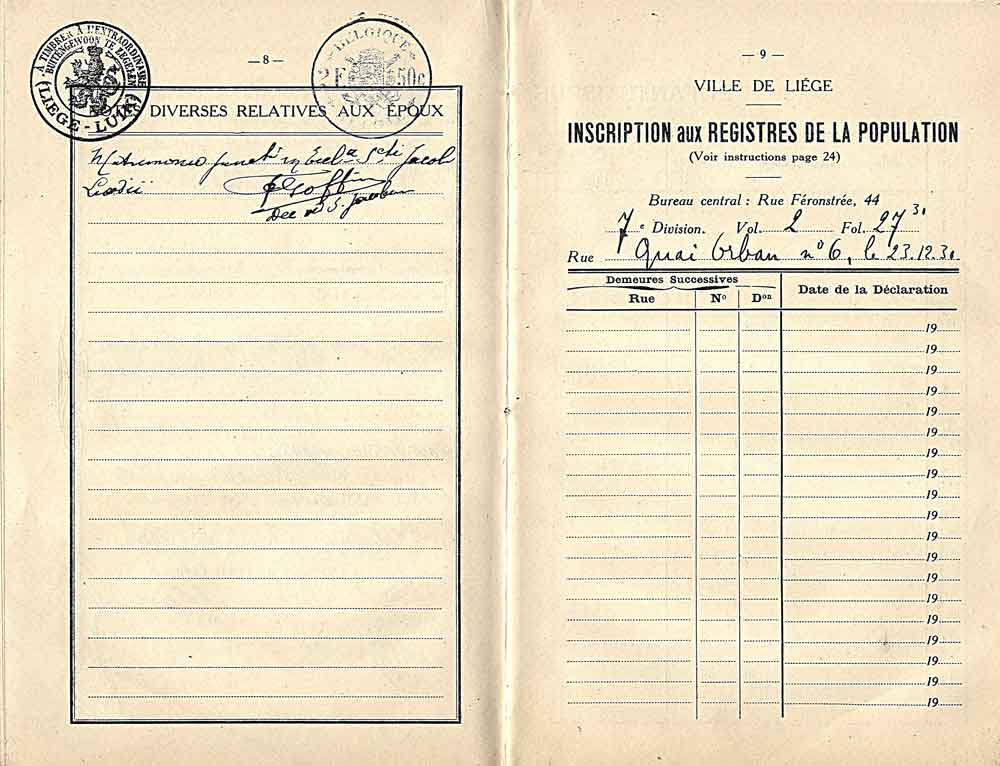 À TIMBRER À L'EXTRAORDINAIRE
BUITENGEWOON TE ZEGELEN
(LIÉGE - LUIK)
BELGIQUE
2F 50c
— 8 —
DIVERSES RELATIVES AUX ÉPOUX
Matrimonio Sti Jacobi
Leodii
Goffin
Dec S. Jacobi
— 9 —
VILLE DE LIÉGE
INSCRIPTION aux REGISTRES DE LA POPULATION
(Voir instructions page 24)
Bureau central : Rue Féronstrée, 44
7e Division. Vol. 2 Fol. 27 31
Rue Quai Orban n° 6, le 23.12.30
Demeures Successives
Rue No Don Date de la Déclaration
19
19
19
19
19
19
19
19
19
19
19
19
19
19
19
19
19
19
19